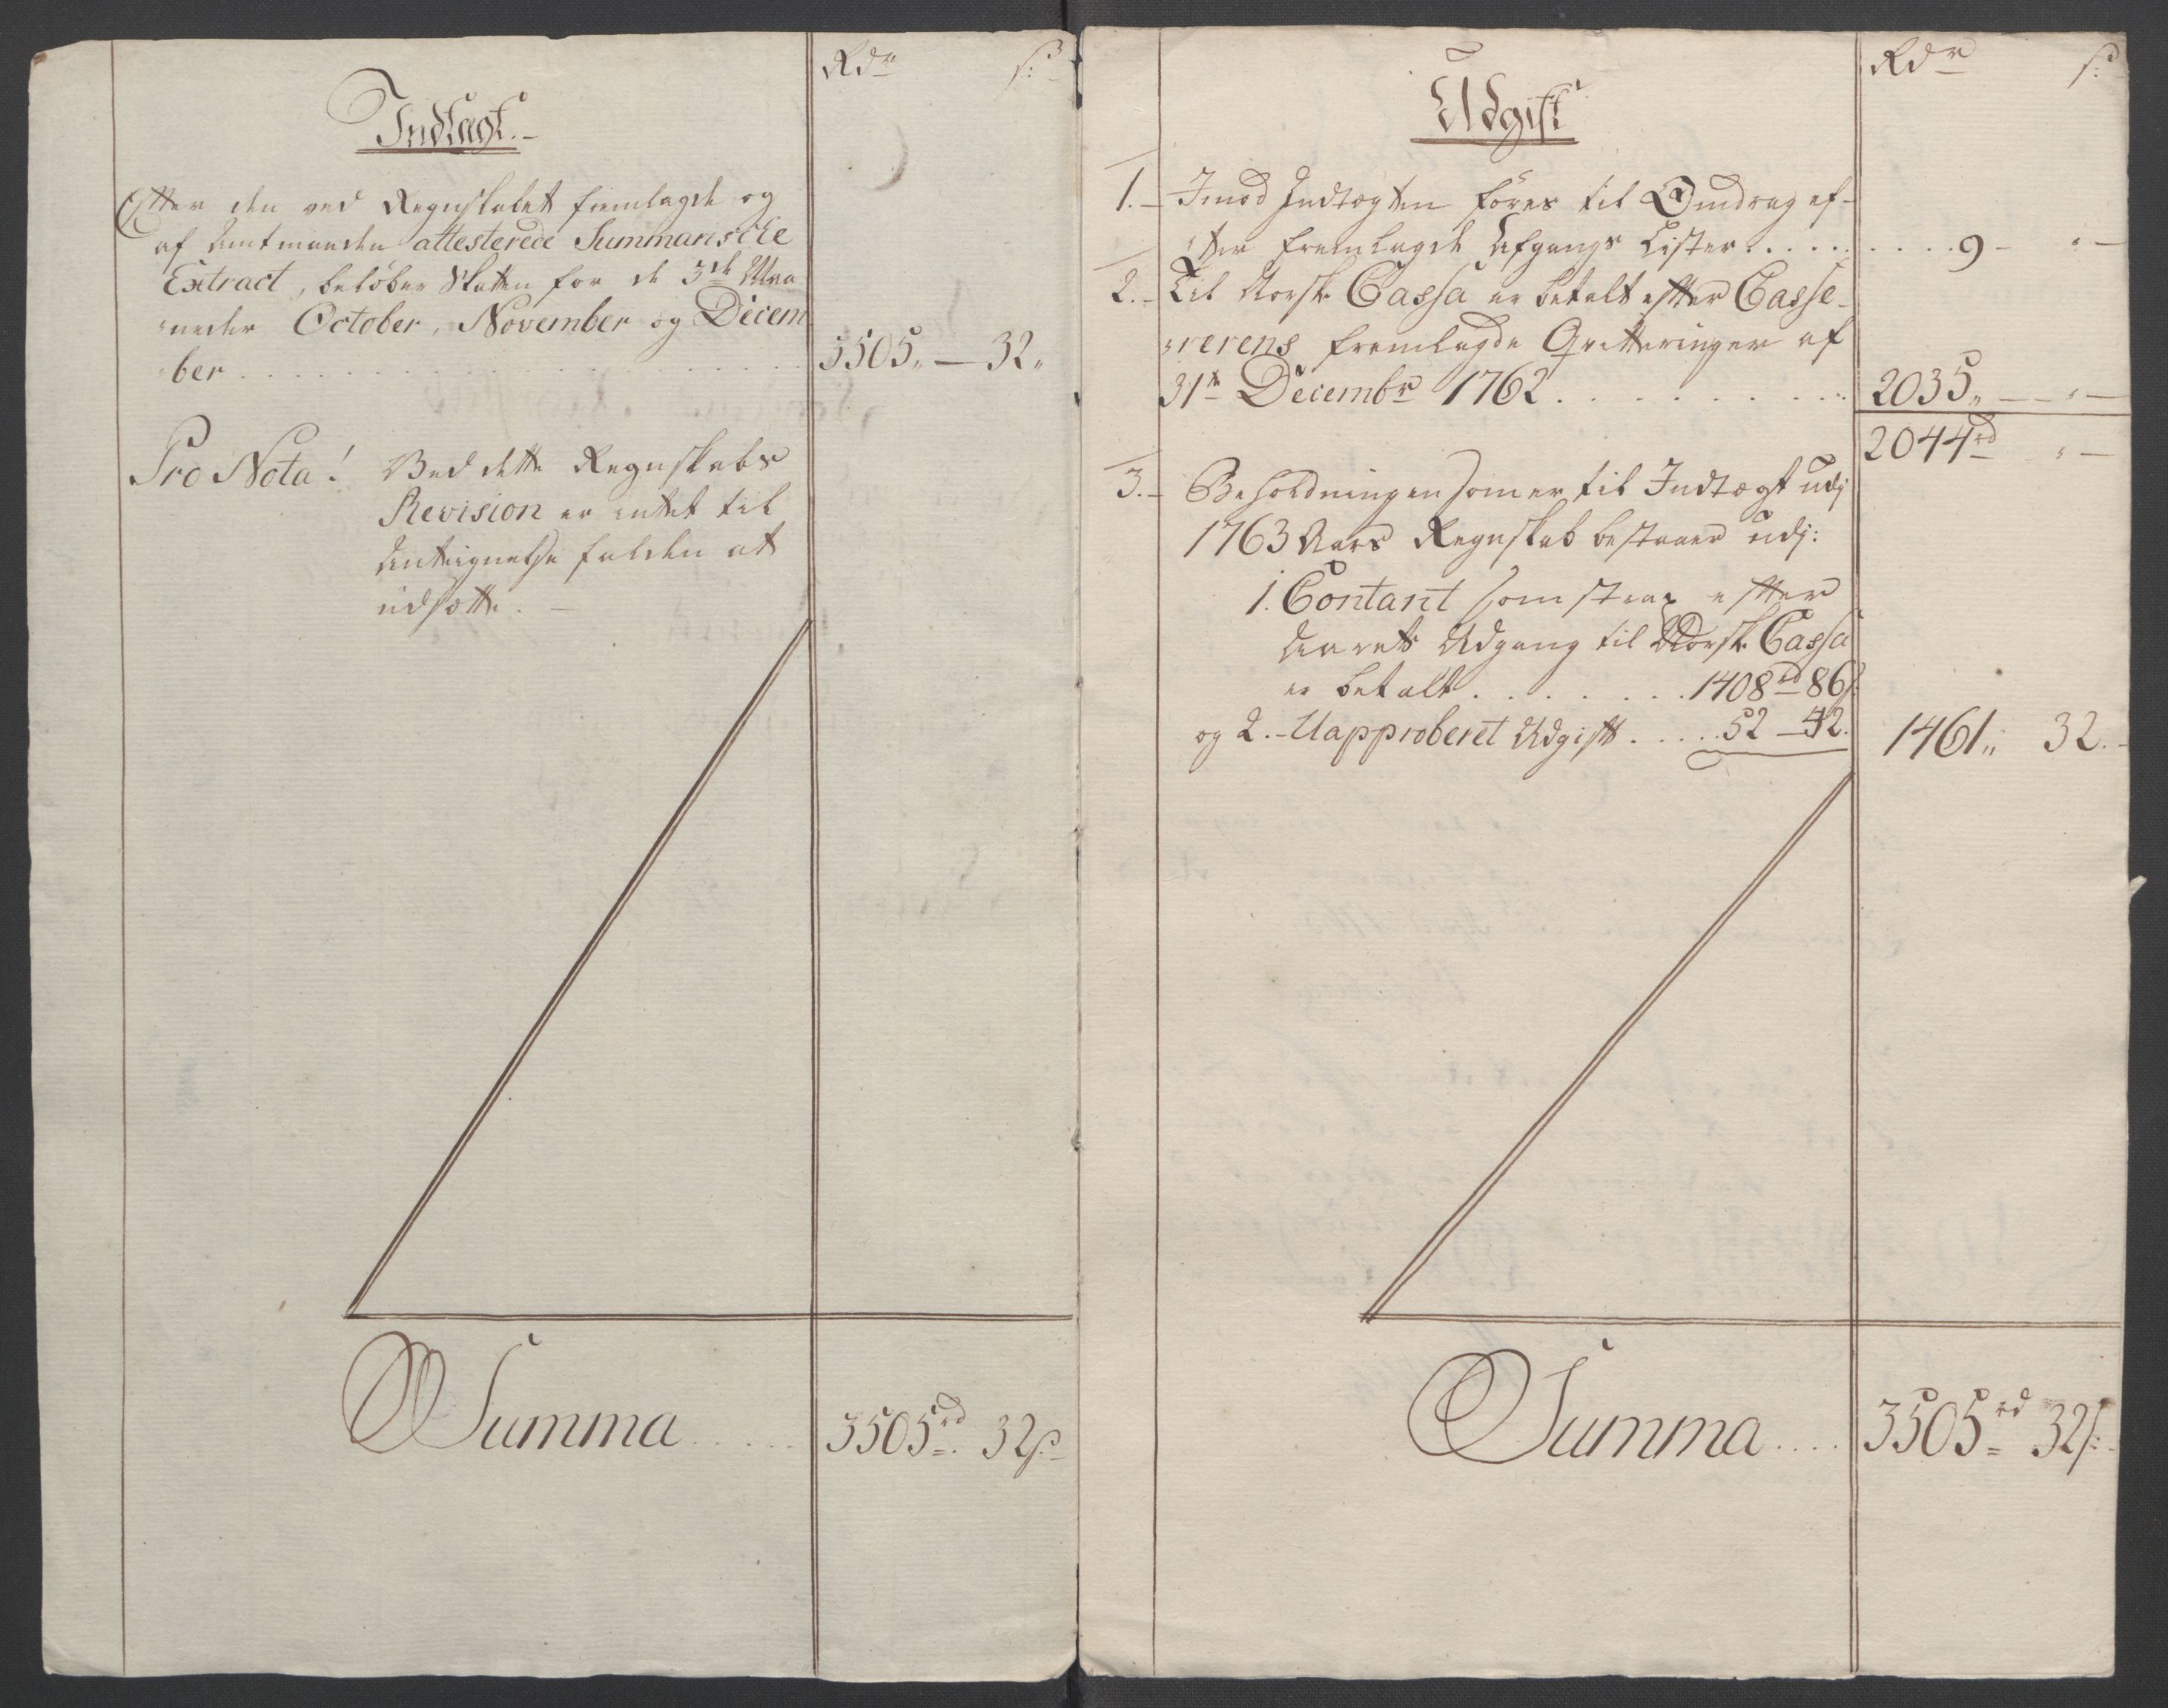 Rdr ß:
Indtægt.-
Efter den ved Regnskabet fremlagde og
af Amtmanden attesterede Summariske
Extract, beløber Skatten for de 3de Maa-
neder October, November og Decem
ber . . . . . . . . . . 3505„ — 32„
Pro Nota! Ved dette Regnskabs
Revision er intet til
Antegnelse falden at
udsætte. —
Summa . . . . . 3505rd. 32ß
Rdr ß
Udgift
1.- Imod Indtægten føres til Omdrag ef-
ter fremlagde Afgangs Lister . . . . . . . . . 9 - „ —
2.- Til Norsk Cassa er betalt efter Casse-
rerens fremlagde Qvitteringer af
31te Decembr 1762 . . . . . . . . . 2035„ — „ —
2044rd „ —
3.- Beholdningen som er til Indtægt udj
1763 Aars Regnskab bestaaer udj:
1. Contant som strax efter
Aarets Udgang til Norsk Cassa
er betalt . . . . . . . 1408rd 86ß
og 2.- Uapproberet Udgift . . . . . 52 — 42. 1461„ 32.-
Summa . . . . 3505rd 32ß: